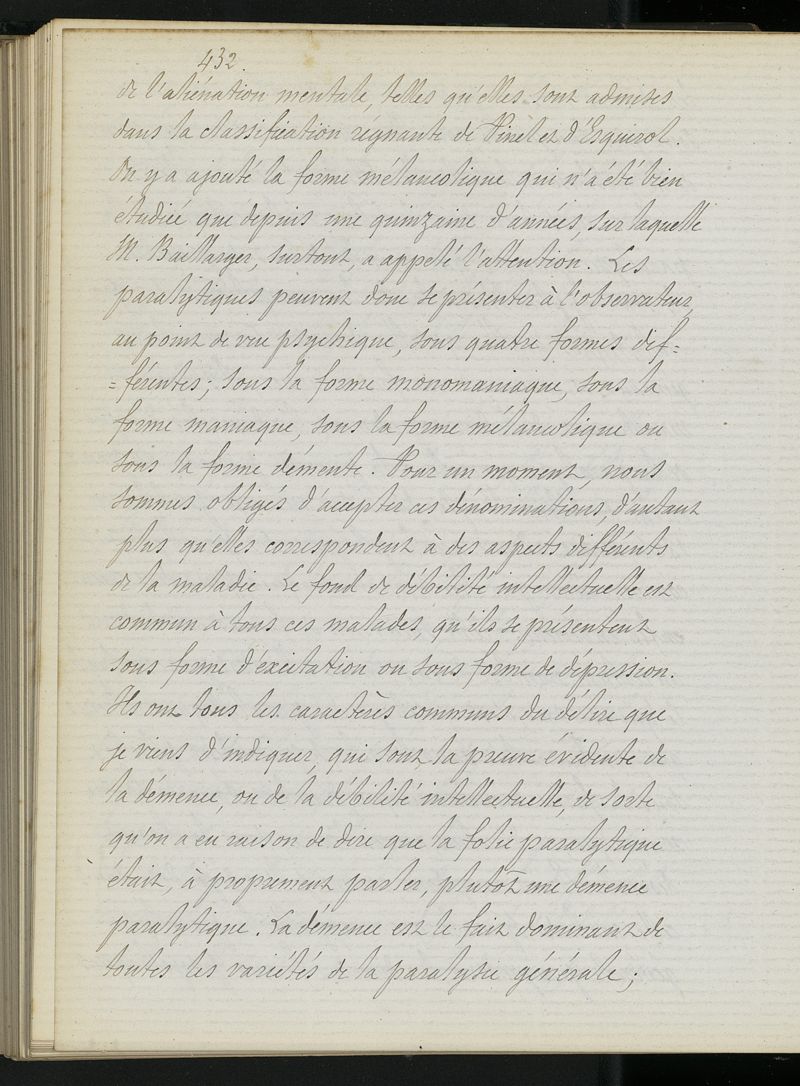 432.
de l'aliénation mentale, telles qu'elles sont admises
dans la classification régnante de Pinel et d'Esquirol.
On y a ajouté la forme mélancolique qui n'a été bien
étudiée que depuis une quinzaine d'années, sur laquelle
M. Baillarger, surtout, a appelé l'attention. Les
paralytiques peuvent donc se présenter à l'observateur,
au point de vue psychique, sous quatre formes dif=
=férentes; sous la forme monomaniaque, sous la
forme maniaque, sous la forme mélancolique ou
sous la forme démente. Pour un moment, nous
sommes obligés d'accepter ces dénominations, d'autant
plus qu'elles correspondent à des aspects différents
de la maladie. Le fond de débilité intellectuelle est
commun à tous ces malades, qu'ils se présentent
sous forme d'excitation ou sous forme de dépression.
Ils ont tous les caractères communs du délire que
je viens d'indiquer, qui sont la preuve évidente de
la démence, ou de la débilité intellectuelle, de sorte
qu'on a eu raison de dire que la folie paralytique
était, à proprement parler, plutôt une démence
paralytique. La démence est le fait dominant de
toutes les variétés de la paralysie générale;